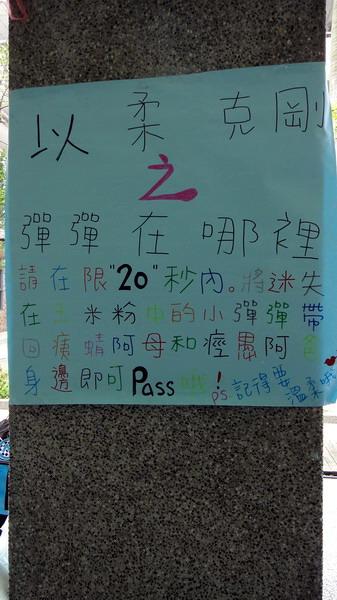 以柔克剛
之
彈彈在哪裡
請在限"20"秒內。將迷失
在玉米粉中的小彈彈帶
回癀蜻阿母和瘂愚阿爸
身邊即可Pass哦!
ps記得要溫柔哦